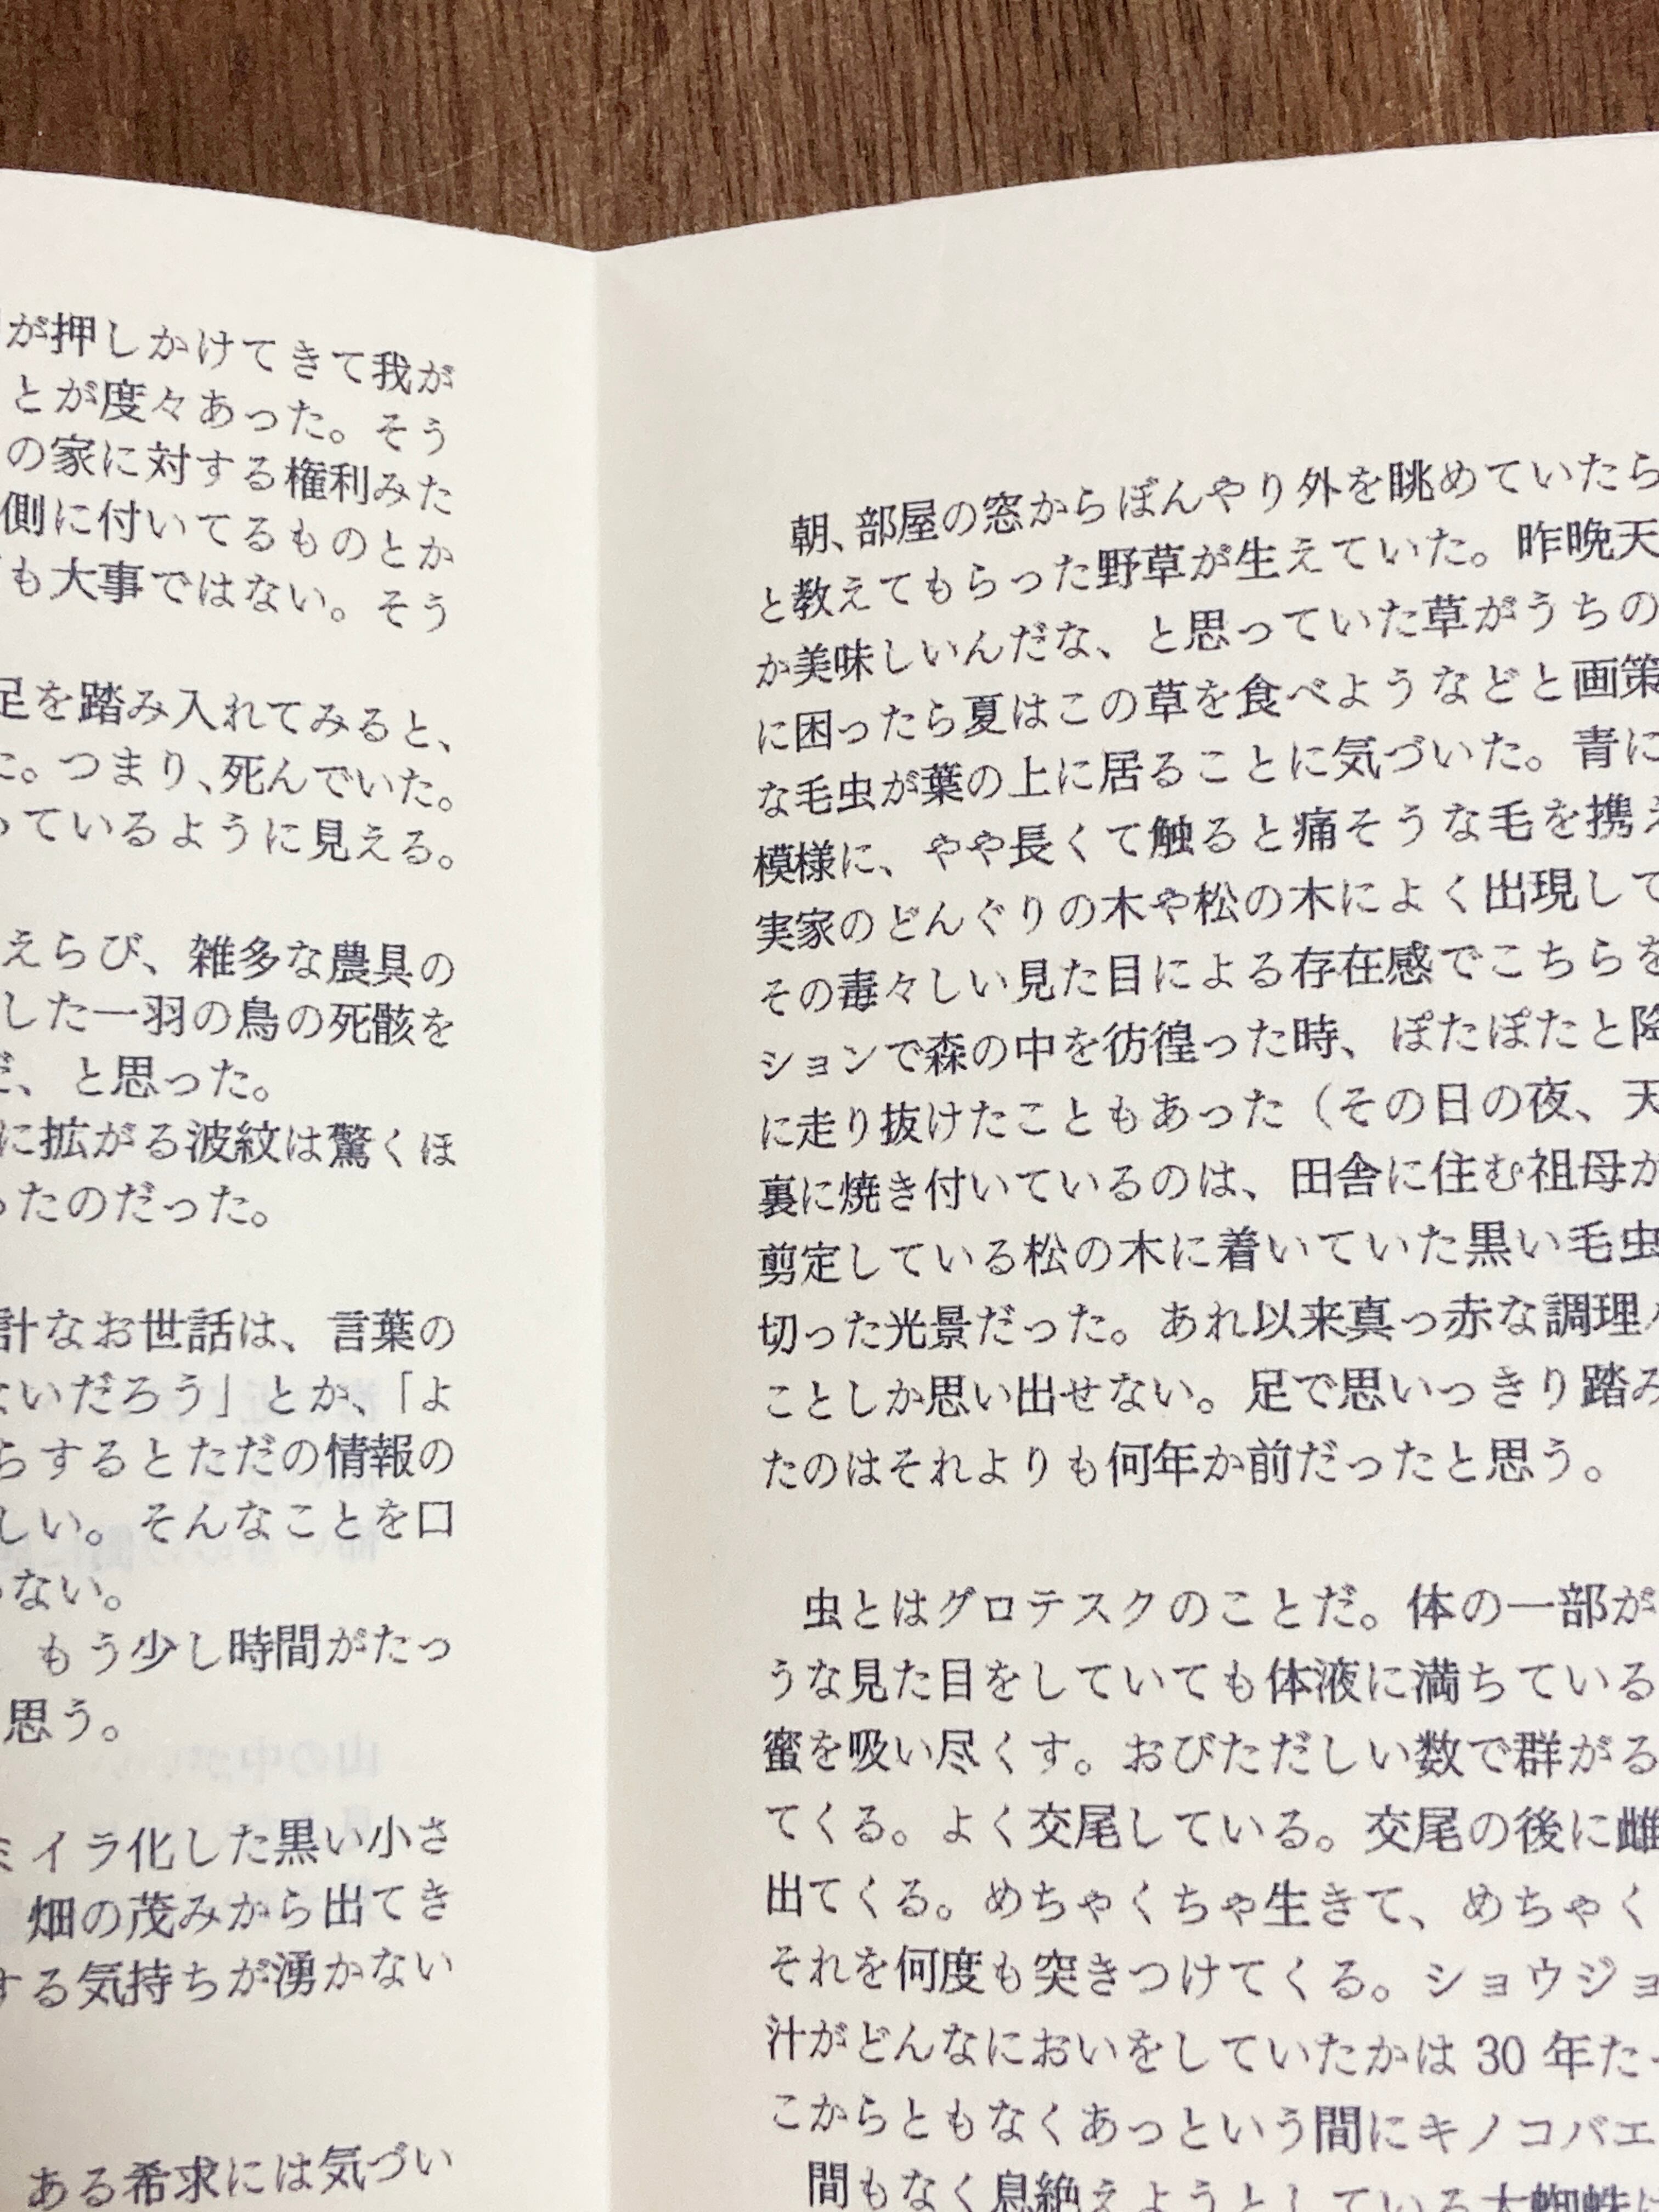 が押しかけてきて我が
とが度々あった。そう
の家に対する権利みた
側に付いてるものとか
も大事ではない。そう
足を踏み入れてみると、
た。つまり、死んでいた。
っているように見える。
えらび、雑多な農具の
した一羽の鳥の死骸を
だ、と思った。
に拡がる波紋は驚くほ
ったのだった。
計なお世話は、言葉の
ないだろう」とか、「よ
らするとただの情報の
しい。そんなことを口
ない。
もう少し時間がたっ
思う。
ミイラ化した黒い小さ
畑の茂みから出てき
する気持ちが湧かない
ある希求には気づい
朝、部屋の窓からぼんやり外を眺めていたら
と教えてもらった野草が生えていた。昨晩天
か美味しいんだな、と思っていた草がうちの
に困ったら夏はこの草を食べようなどと画策
な毛虫が葉の上に居ることに気づいた。青に
模様に、やや長くて触ると痛そうな毛を携え
実家のどんぐりの木や松の木によく出現して
その毒々しい見た目による存在感でこちらを
ションで森の中を彷徨った時、ぽたぽたと降
に走り抜けたこともあった（その日の夜、天
裏に焼き付いているのは、田舎に住む祖母が
剪定している松の木に着いていた黒い毛虫
切った光景だった。あれ以来真っ赤な調理
ことしか思い出せない。足で思いっきり踏み
たのはそれよりも何年か前だったと思う。
虫とはグロテスクのことだ。体の一部が
うな見た目をしていても体液に満ちている
蜜を吸い尽くす。おびただしい数で群がる
てくる。よく交尾している。交尾の後に雌
出てくる。めちゃくちゃ生きて、めちゃく
それを何度も突きつけてくる。ショウジョ
汁がどんなにおいをしていたかは 30 年たっ
こからともなくあっという間にキノコバエ
間もなく息絶えようとしている大蜘蛛は